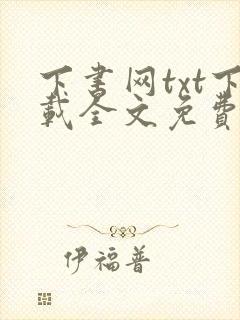 下书网txt下
载全文免费
伊福普